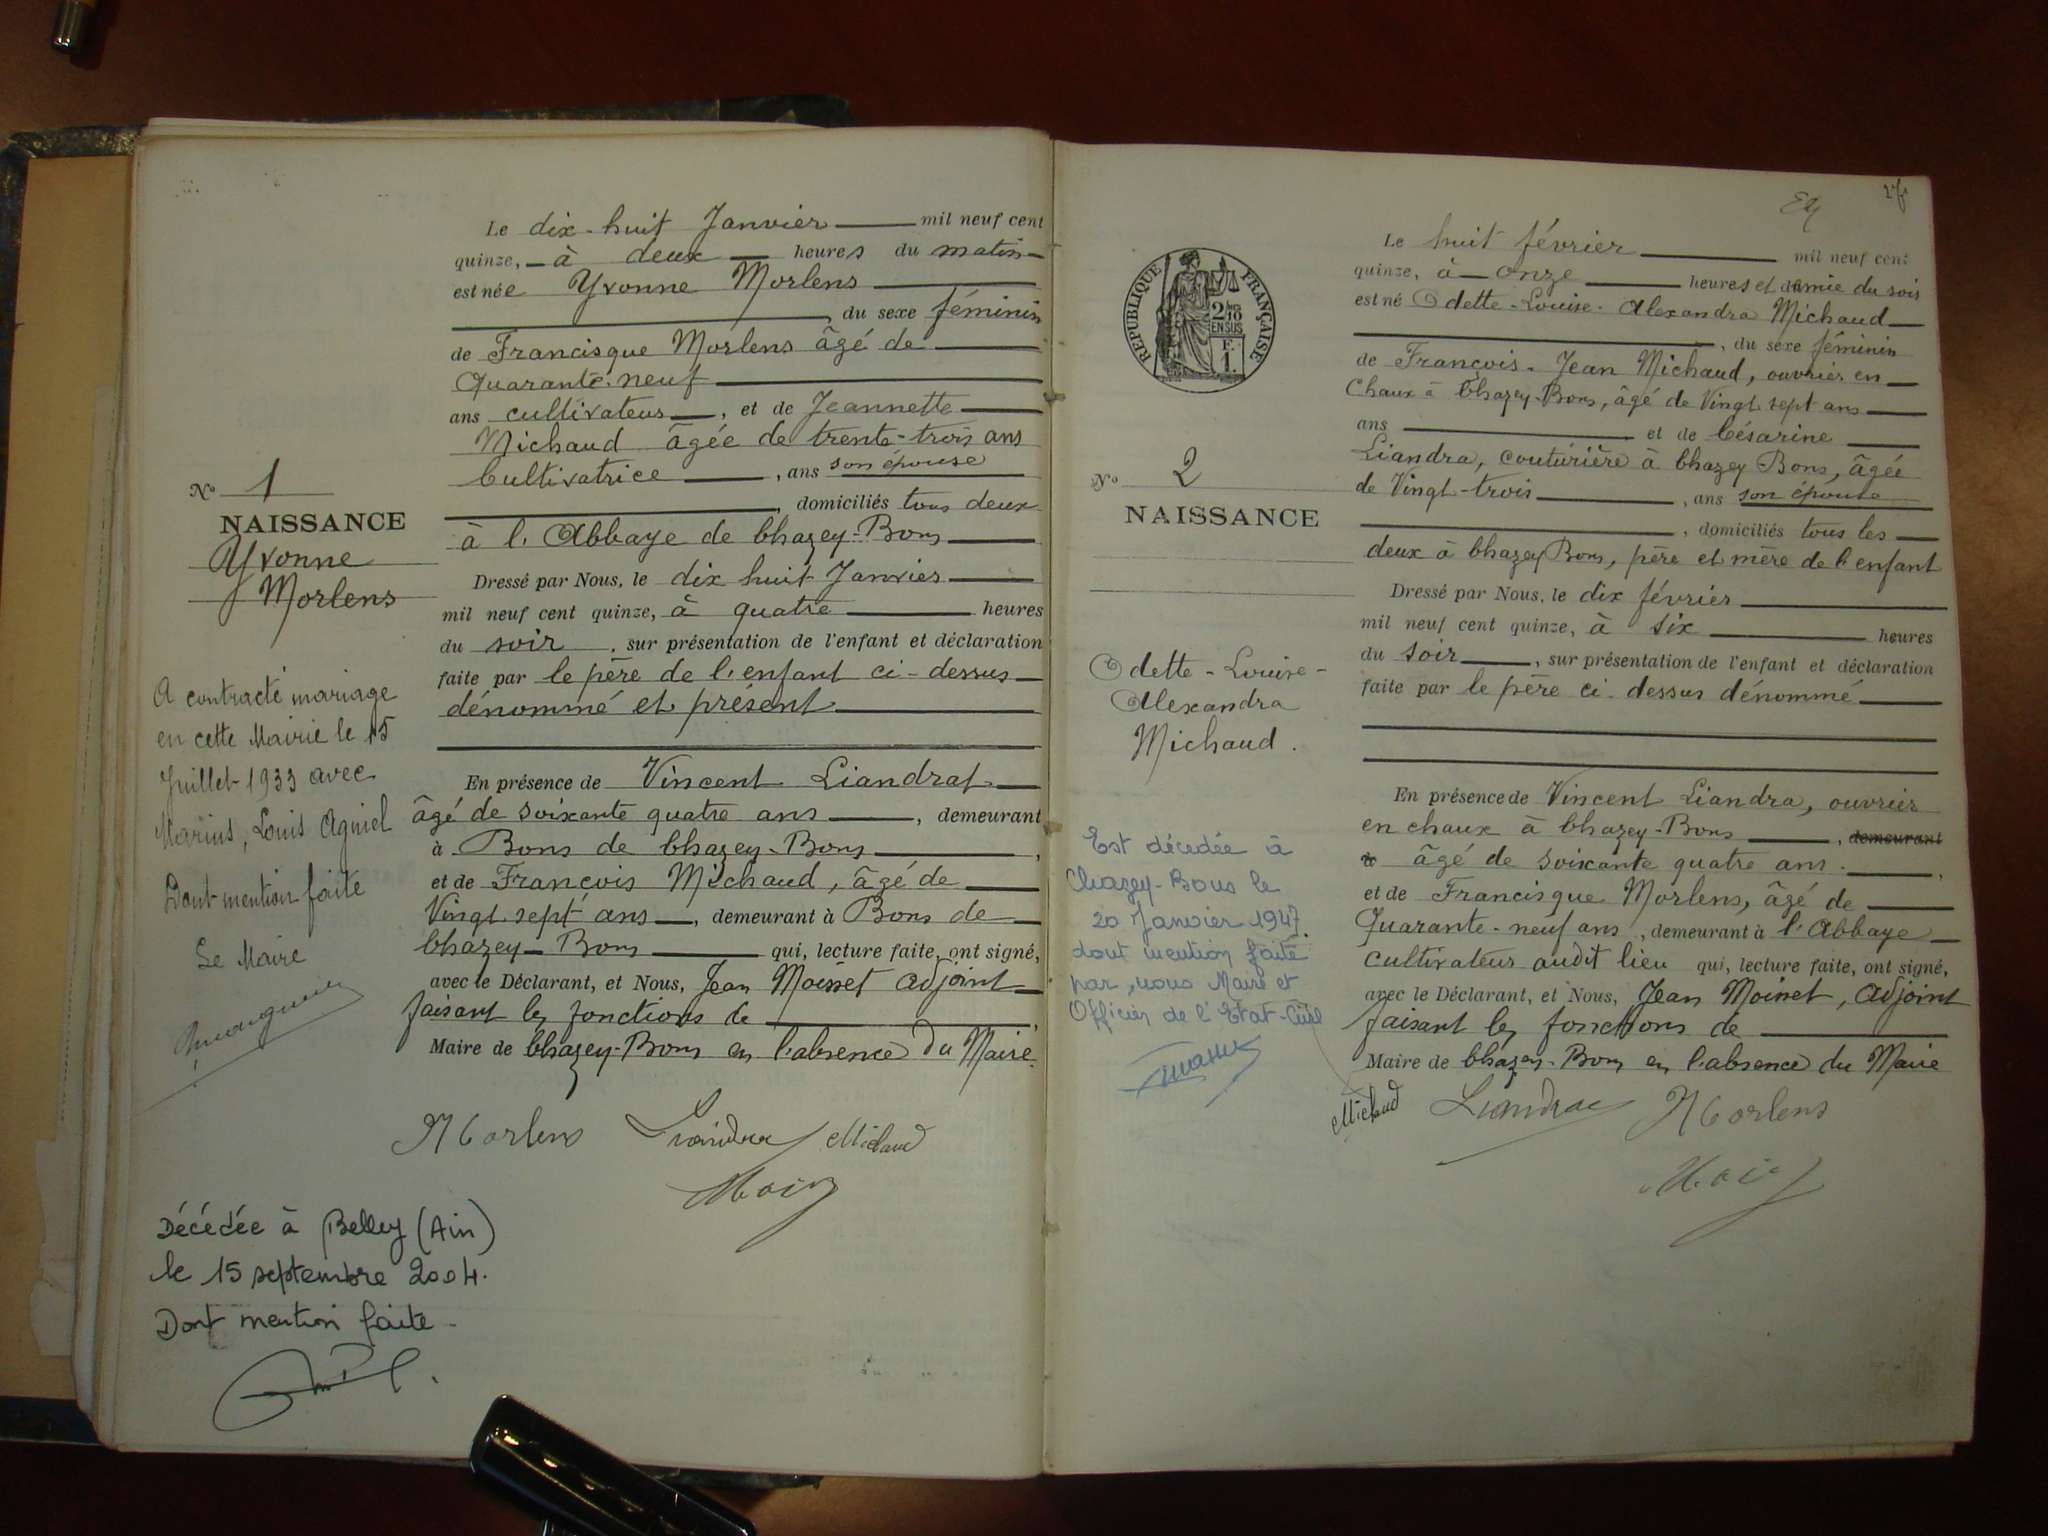 Le dix-huit Janvier mil neuf cent
quinze, à deux heures du matin
est née Yvonne Morlens
du sexe féminin
de Francisque Morlens âgé de
Quarante-neuf
ans cultivateur, et de Jeannette
Michaud âgée de trente-trois ans
Cultivatrice, ans son épouse
, domiciliés tous deux
à l'Abbaye de Chazey-Bons
Dressé par Nous, le dix huit Janvier
mil neuf cent quinze, à quatre heures
du soir, sur présentation de l'enfant et déclaration
faite par le père de l'enfant ci-dessus
dénommé et présent
En présence de Vincent Liandrat
âgé de soixante quatre ans, demeurant
à Bons de Chazey-Bons,
et de François Michaud, âgé de
Vingt sept ans, demeurant à Bons de
Chazey-Bons qui, lecture faite, ont signé,
avec le Déclarant, et Nous, Jean Moinet adjoint
faisant les fonctions de
Maire de Chazey-Bons en l'absence du Maire.
Morlens Liandra Michaud
No 1
NAISSANCE
Yvonne
Morlens
A contracté mariage
en cette Mairie le 15
Juillet 1933 avec
Marius, Louis Agniel
Dont mention faite
Le Maire
Décédée à Belley (Ain)
le 15 septembre 2004.
Dont mention faite.
RÉPUBLIQUE FRANÇAISE
2/10
EN SUS
F.
1.
Le huit février mil neuf cent
quinze, à onze heures et demie du soir
est né Odette-Louise-Alexandra Michaud
, du sexe féminin
de François-Jean Michaud, ouvrier en
Chaux à Chazey-Bons, âgé de Vingt sept ans
ans et de Césarine
Liandra, couturière à Chazey Bons, âgée
de Vingt-trois, ans son épouse
, domiciliés tous les
deux à Chazey Bons, père et mère de l'enfant
Dressé par Nous, le dix février
mil neuf cent quinze, à six heures
du soir, sur présentation de l'enfant et déclaration
faite par le père ci-dessus dénommé
En présence de Vincent Liandra, ouvrier
en chaux à Chazey-Bons, demeurant
à âgé de soixante quatre ans.,
et de Francisque Morlens, âgé de
Quarante-neuf ans, demeurant à l'Abbaye
cultivateur audit lieu qui, lecture faite, ont signé,
avec le Déclarant, et Nous, Jean Moinet, adjoint
faisant les fonctions de
Maire de Chazey-Bons en l'absence du Maire
Michaud Liandra Morlens
No 2
NAISSANCE
Odette-Louise-
Alexandra
Michaud.
Est décédée à
Chazey-Bons le
20 Janvier 1947.
dont mention faite
par, nous Maire et
Officier de l'Etat-Civil